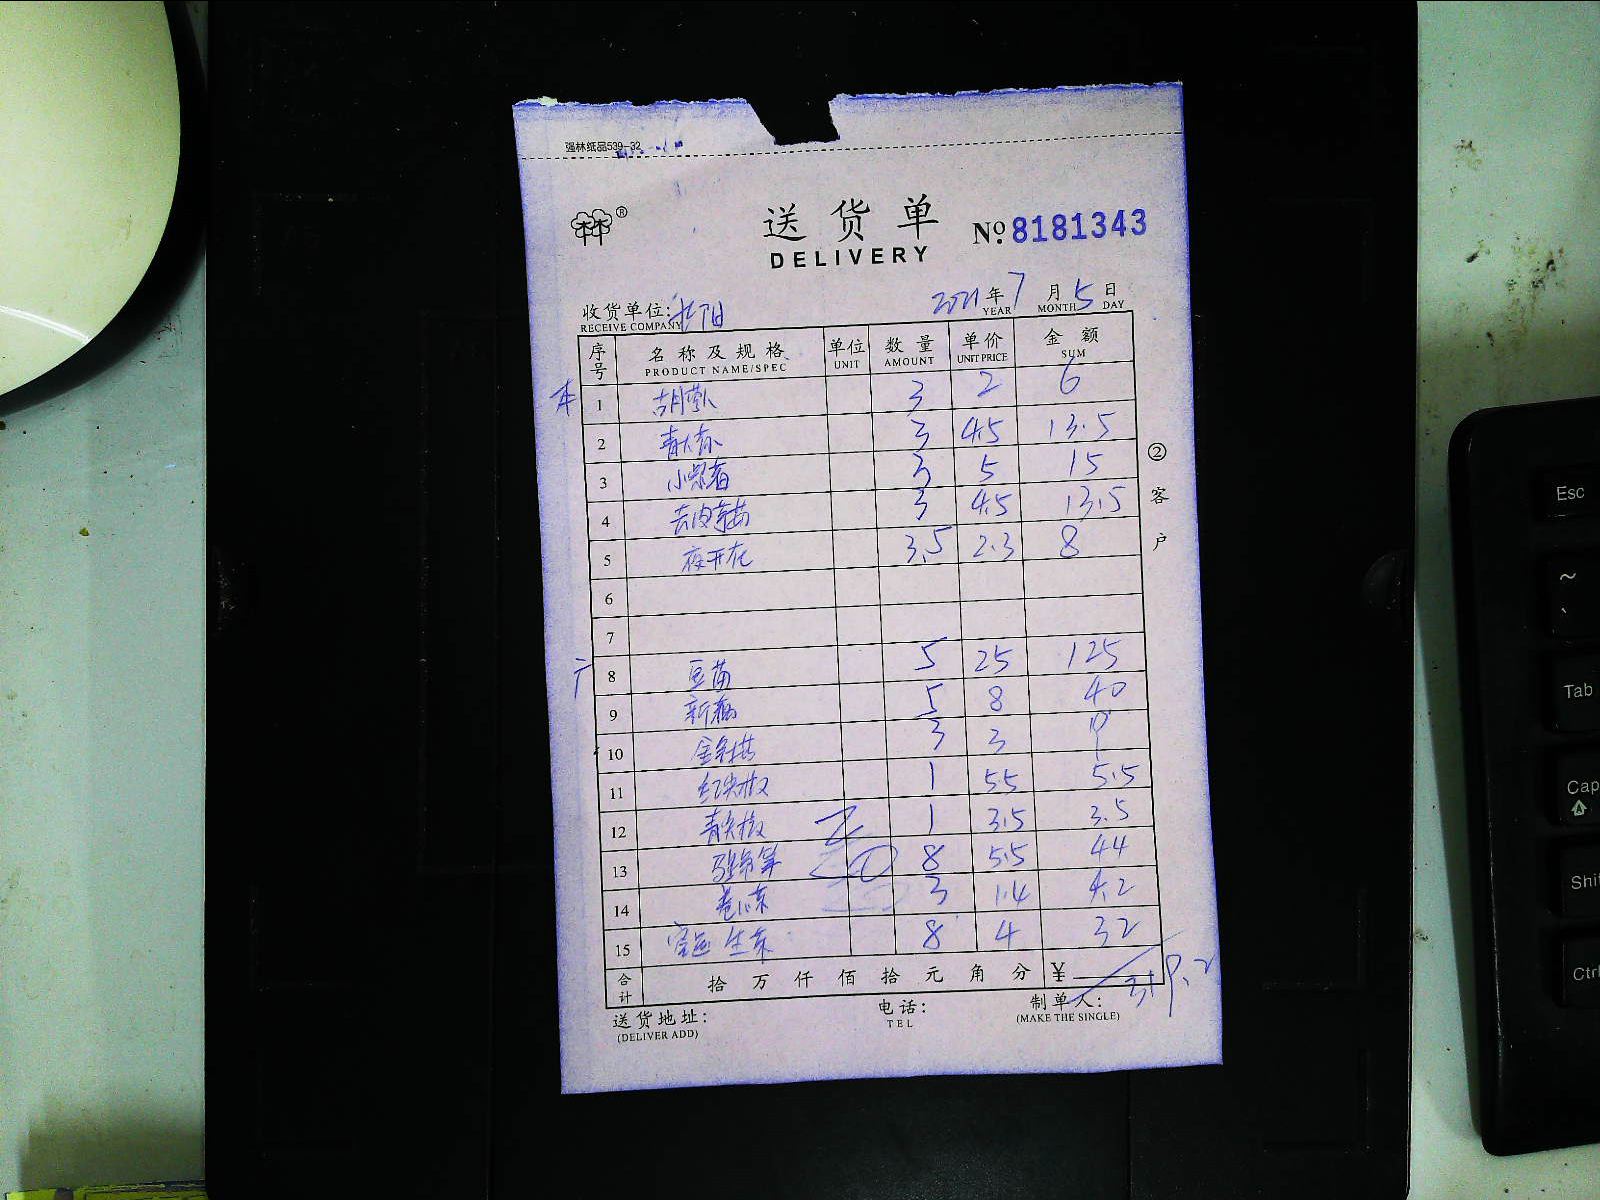 强林纸品539-32
林 ®
送货单
No. 8181343
DELIVERY
2021年7月5日
YEAR MONTH DAY
收货单位:
RECEIVE COMPANY
序号 名称及规格 单位 数量 单价 金额
PRODUCT NAME/SPEC UNIT AMOUNT UNIT PRICE SUM
本 1 胡萝卜 3 2 6
2 青大椒 3 4.5 13.5
3 3 5 15
4 去皮莴苣 3 4.5 13.5
5 夜开花 3.5 2.3 8
6
7
8 豆苗 5 25 125
9 新藕 5 8 40
10 金针菇 3 3 9
11 红尖椒 1 5.5 5.5
12 青尖椒 1 3.5 3.5
13 8 5.5 44
14 卷心菜 3 1.4 4.2
15 生菜 8 4 32
合计 拾万仟佰拾元角分 ¥ 319.2
②客户
送货地址: 电话: 制单人:
(DELIVER ADD) TEL (MAKE THE SINGLE)
Esc
~
`
Tab
Cap
Shi
Ctrl